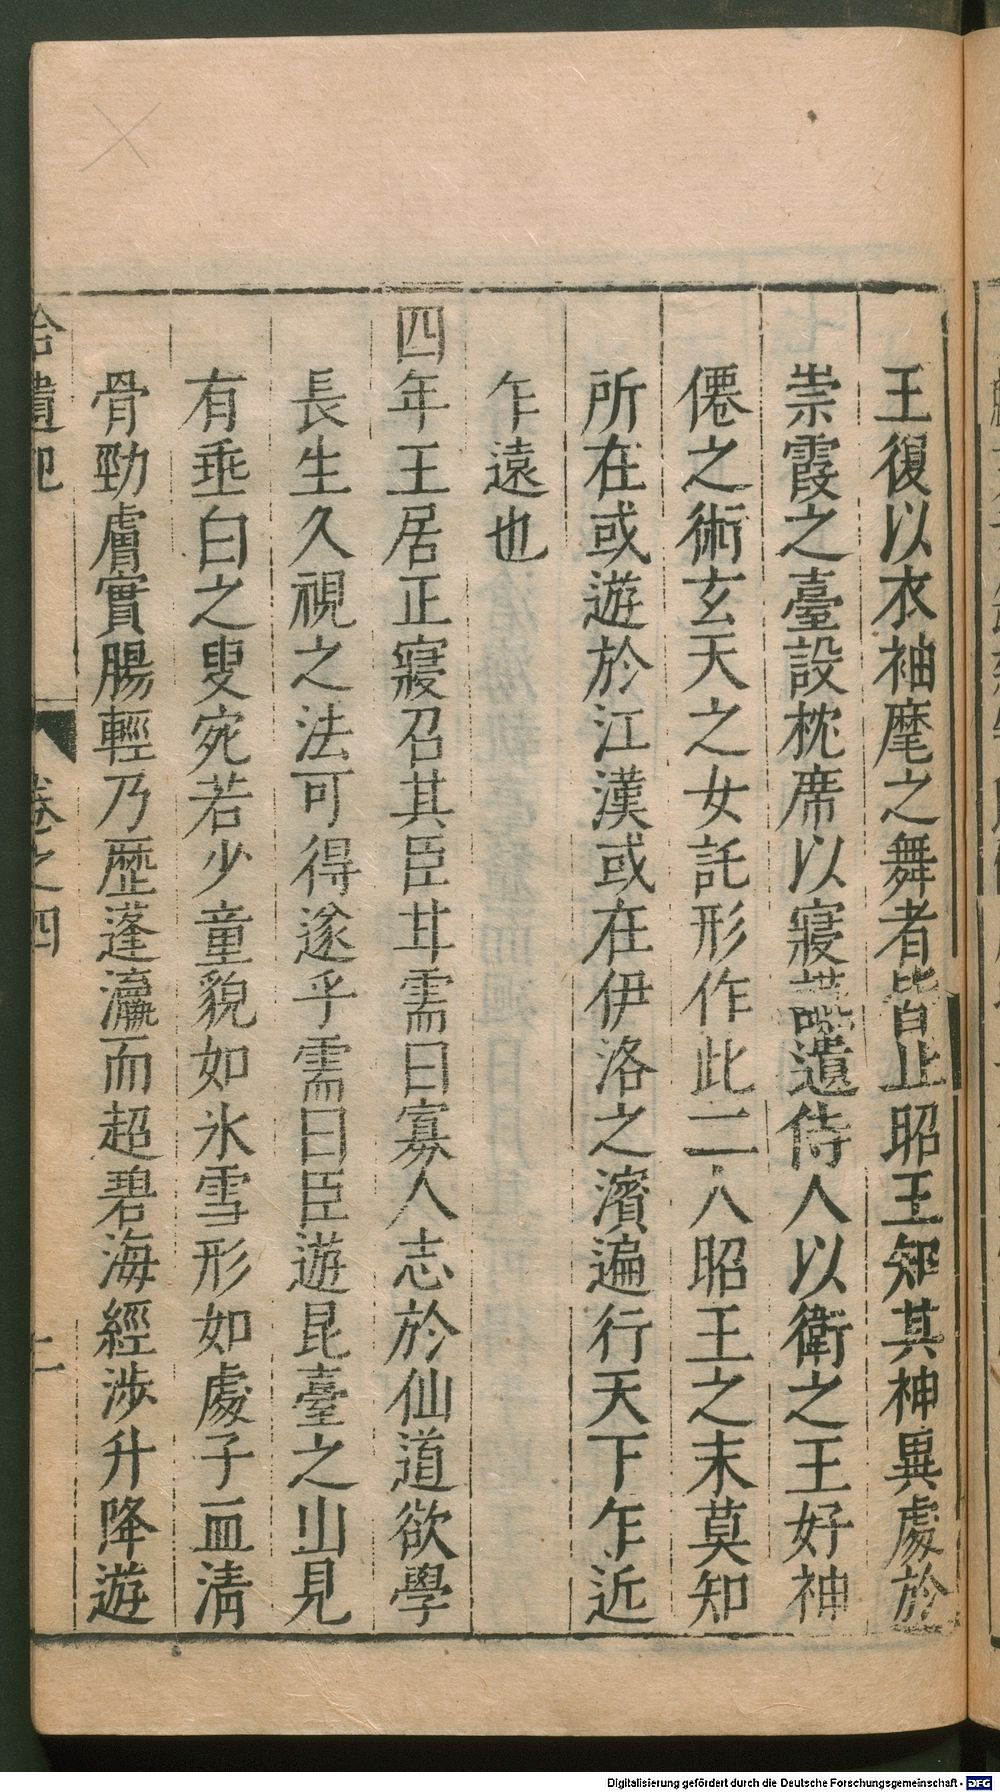 王復以衣袖麾之舞者皆止昭王知其神異處於
崇霞之臺設枕席以寢讌遣侍人以衛之王好神
僊之術玄天之女託形作此二人昭王之末莫知
所在或遊於江漢或在伊洛之濱遍行天下乍近
乍遠也
四年王居正寢召其臣甘需曰寡人志於仙道欲學
長生久視之法可得遂乎需曰臣遊昆臺之山見
有垂白之叟宛若少童貌如冰雪形如處子血清
骨勁膚實腸輕乃歷蓬瀛而超碧海經涉升降遊
拾遺記 卷之四 二
Digitalisierung gefördert durch die Deutsche Forschungsgemeinschaft - DFG